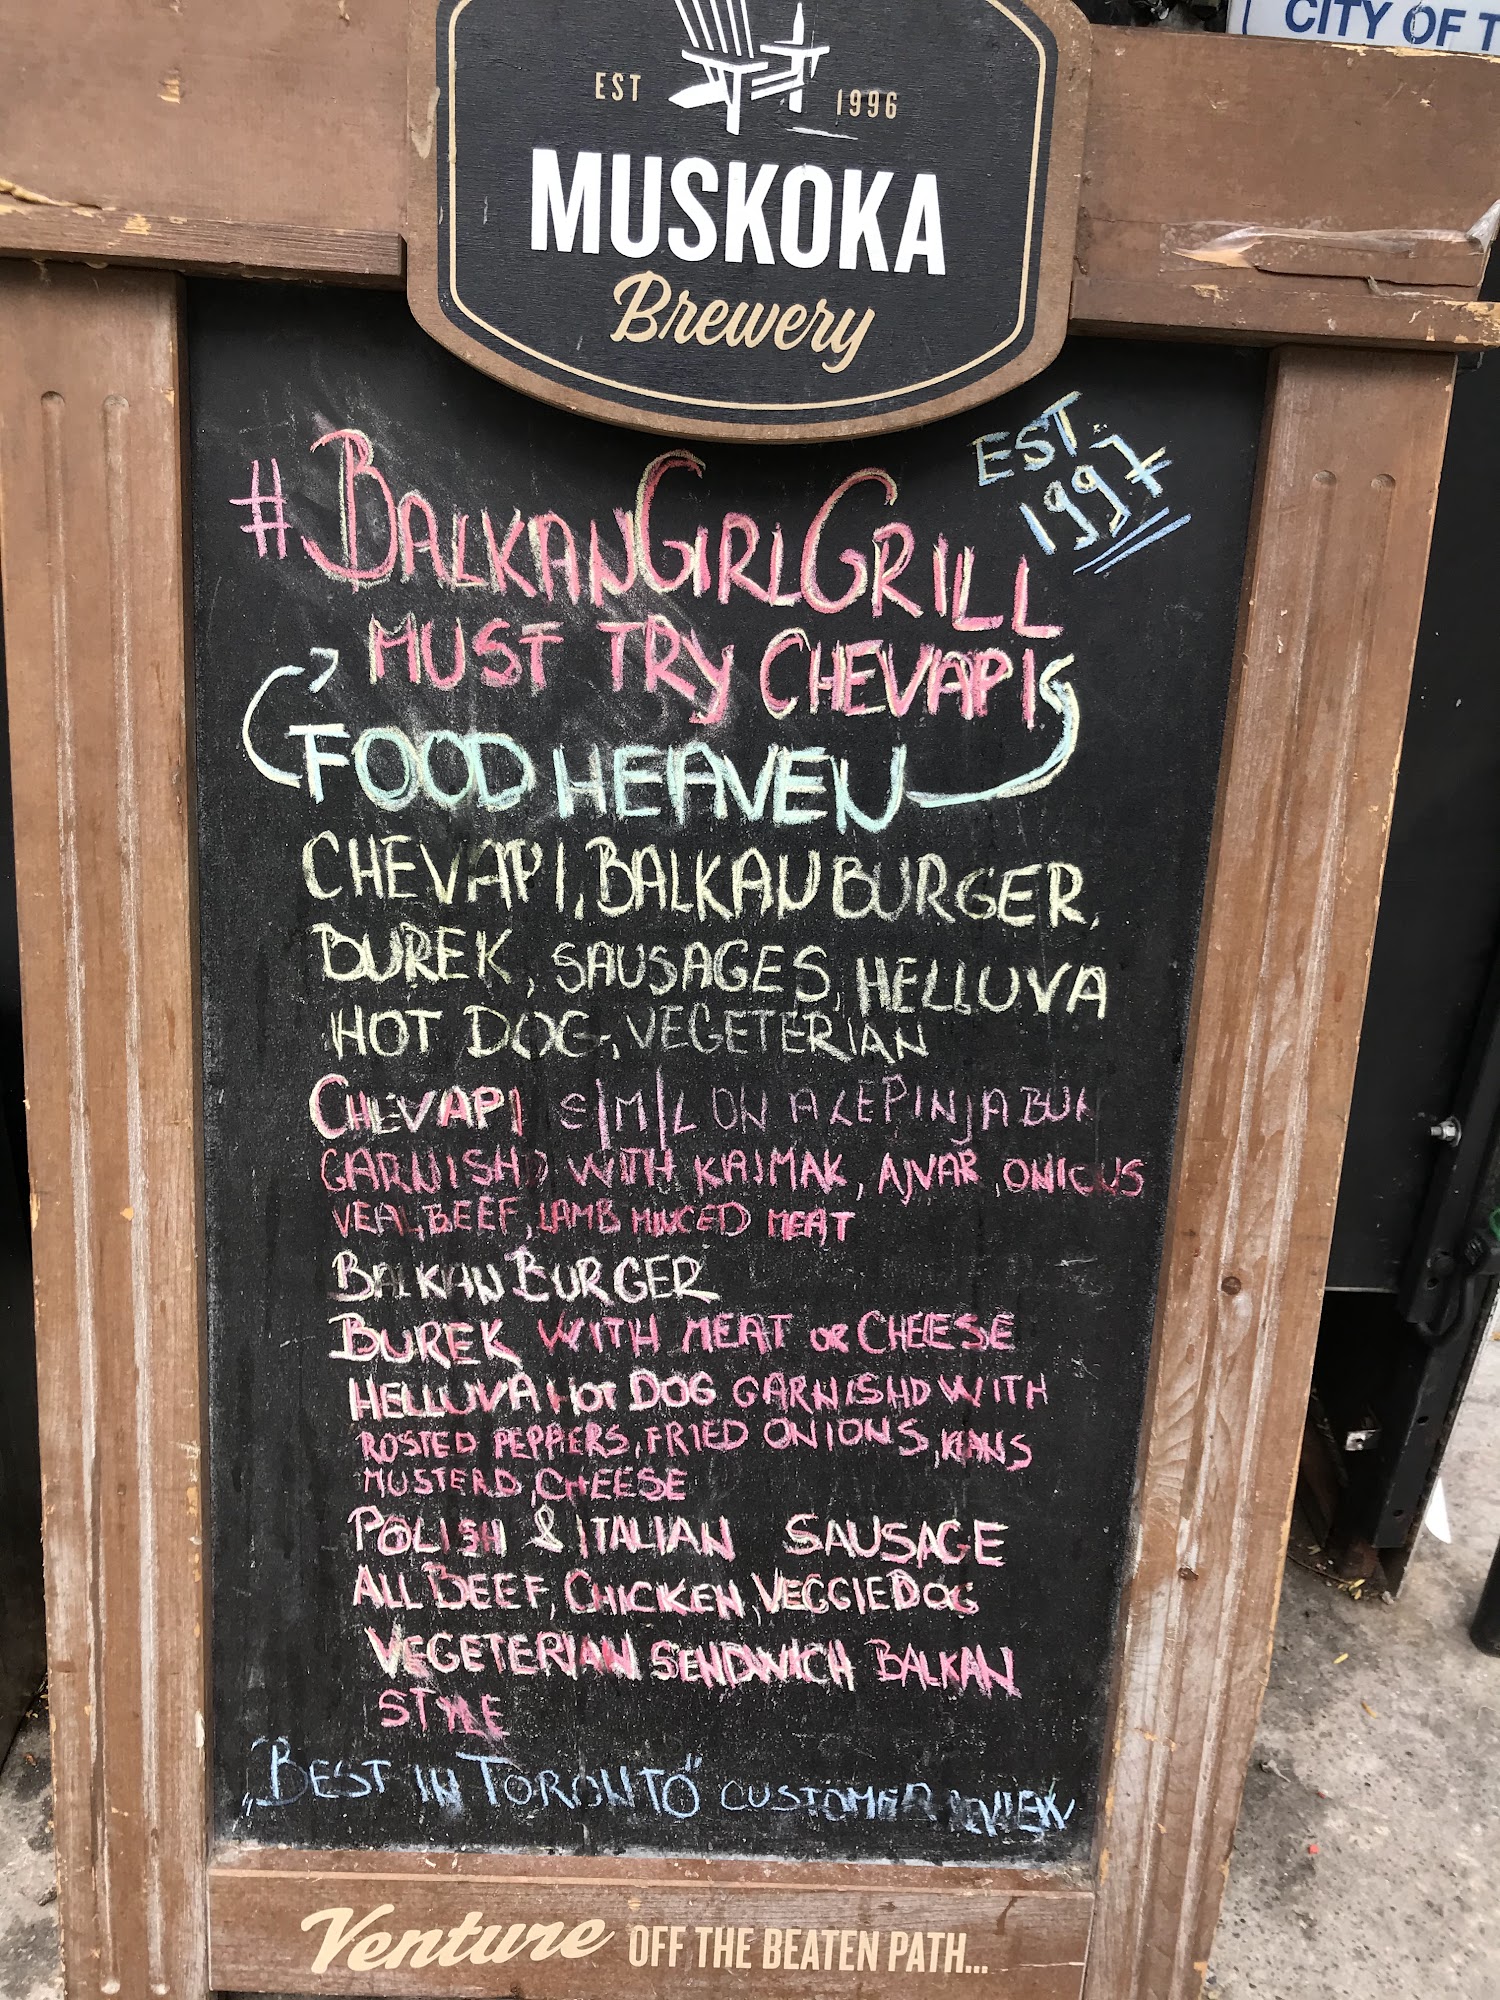 CITY OF T
EST 1996
MUSKOKA
Brewery
EST.
1997
#BALKANGIRLGRILL
MUST TRY CHEVAPI
FOOD HEAVEN
CHEVAPI, BALKAN BURGER,
BUREK, SAUSAGES, HELLUVA
HOT DOG, VEGETERIAN
CHEVAPI ON A LEPINJA BUN
GARNISHD WITH KAJMAK, AJVAR, ONIONS
VEAL, BEEF, LAMB MINCED MEAT
BALKAN BURGER
BUREK WITH MEAT OR CHEESE
HELLUVA HOT DOG GARNISHD WITH
ROSTED PEPPERS, FRIED ONIONS,
MUSTERD, CHEESE
POLISH & ITALIAN SAUSAGE
ALL BEEF, CHICKEN, VEGGIE DOG
VEGETERIAN SENDWICH BALKAN
STYLE
"BEST IN TORONTO" CUSTOMER REVIEW
Venture OFF THE BEATEN PATH...